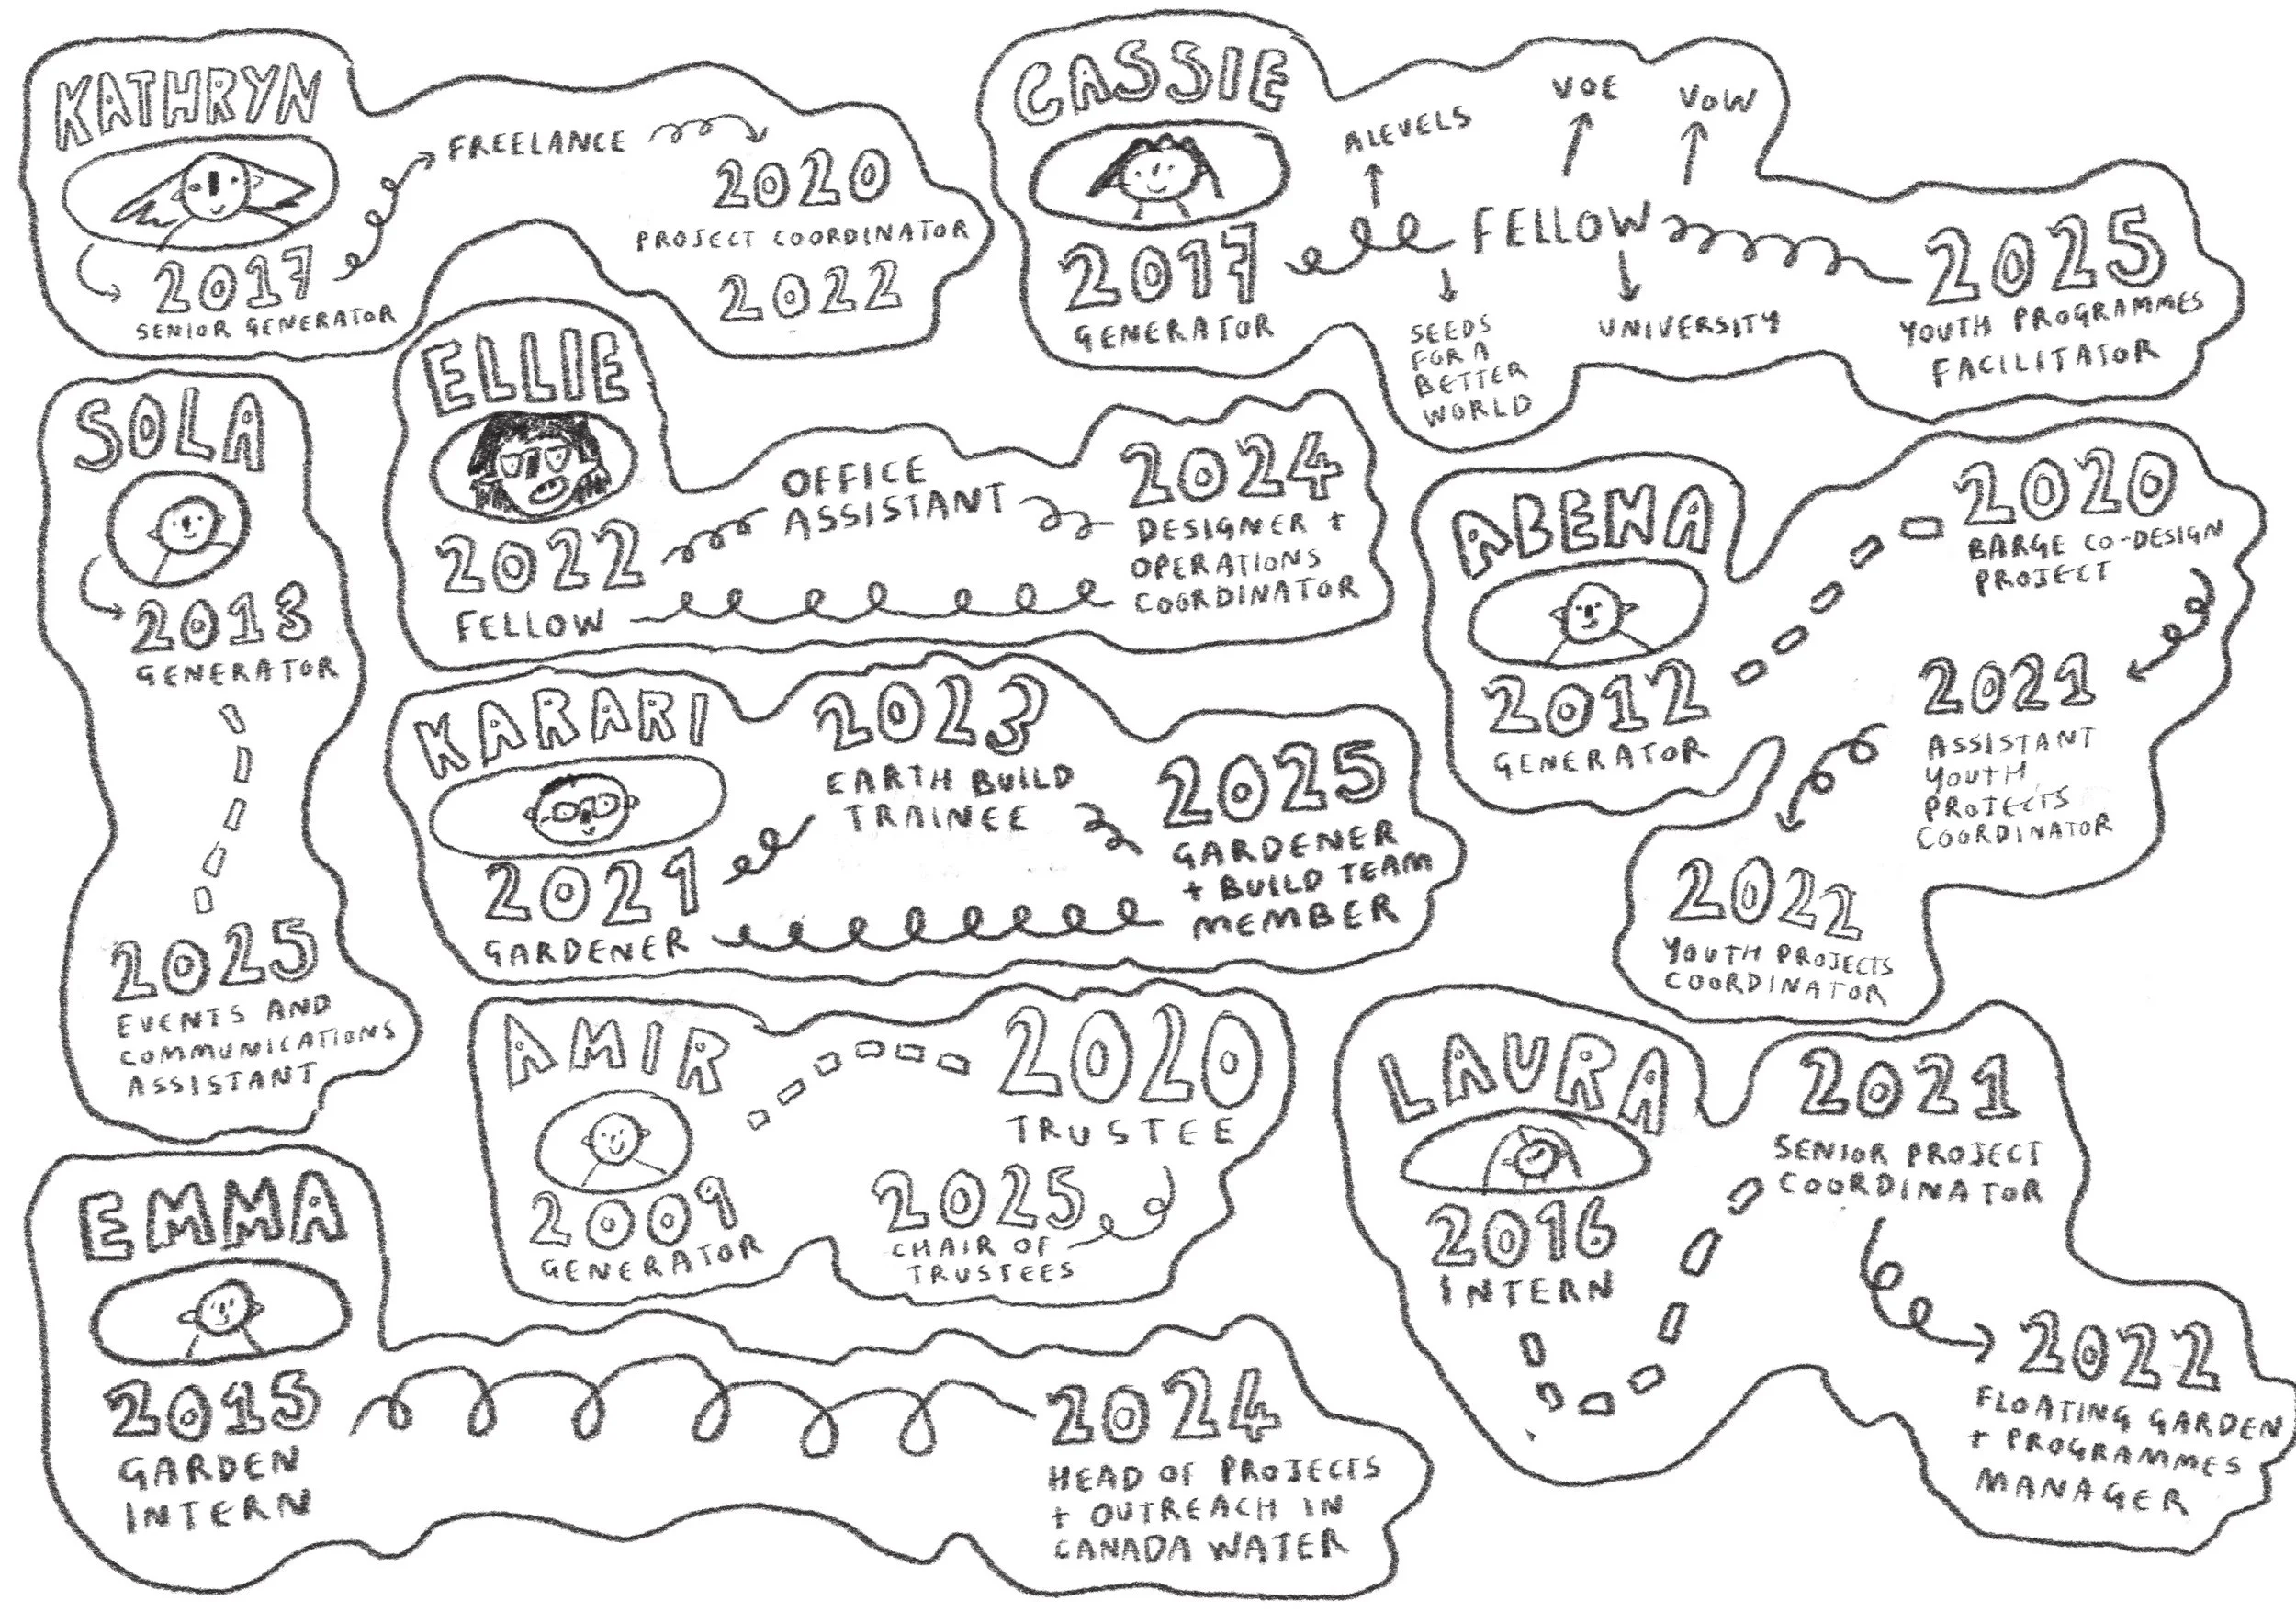 KATHRYN
2017
SENIOR GENERATOR
FREELANCE
2020
PROJECT COORDINATOR
2022
CASSIE
2017
GENERATOR
ALEVELS
SEEDS
FOR A
BETTER
WORLD
FELLOW
VOE
VOW
UNIVERSITY
2025
YOUTH PROGRAMMES
FACILITATOR
SOLA
2013
GENERATOR
2025
EVENTS AND
COMMUNICATIONS
ASSISTANT
ELLIE
2022
FELLOW
OFFICE
ASSISTANT
2024
DESIGNER +
OPERATIONS
COORDINATOR
ABENA
2012
GENERATOR
2020
BARGE CO-DESIGN
PROJECT
2021
ASSISTANT
YOUTH
PROJECTS
COORDINATOR
2022
YOUTH PROJECTS
COORDINATOR
KARARI
2021
GARDENER
2023
EARTH BUILD
TRAINEE
2025
GARDENER
+ BUILD TEAM
MEMBER
AMIR
2009
GENERATOR
2020
TRUSTEE
2025
CHAIR OF
TRUSTEES
LAURA
2016
INTERN
2021
SENIOR PROJECT
COORDINATOR
2022
FLOATING GARDEN
+ PROGRAMMES
MANAGER
EMMA
2015
GARDEN
INTERN
2024
HEAD OF PROJECTS
+ OUTREACH IN
CANADA WATER